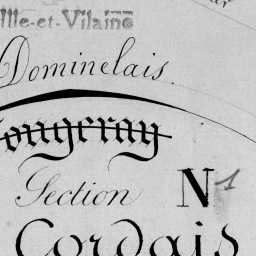 Ille-et-Vilaine
Dominelais.
ougeray
Section N 1
Cordais